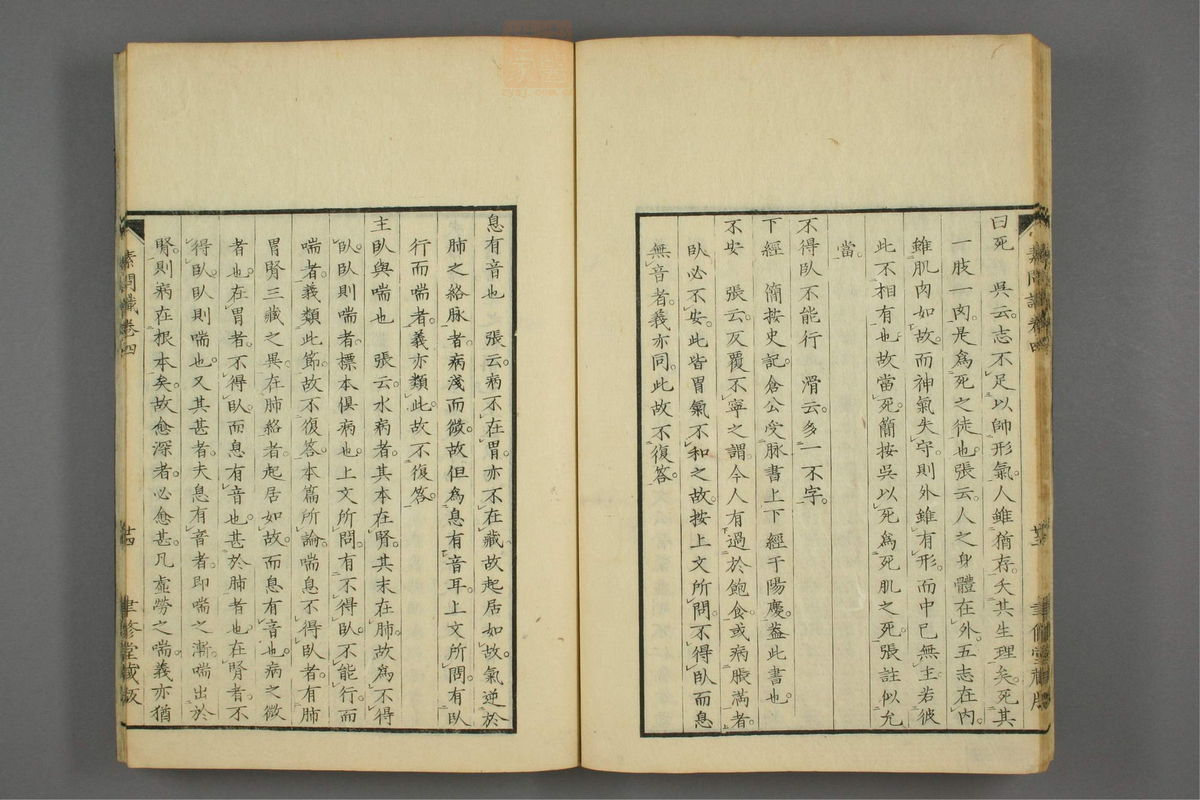 曰死 吳云。志不足以帥形氣。人雖猶存。夭其生理矣。死其
一肢一肉。是爲死之徒也。張云。人之身體在外。五志在內。
雖肌肉如故。而神氣失守。則外雖有形。而中已無主。若彼
此不相有也。故當死。簡按吳以死爲死肌之死。張註似允
當。
不得臥不能行 滑云。多一不字。
下經 簡按史記倉公受脈書上下經于陽慶。蓋此書也。
不安 張云。反覆不寧之謂。今人有過於飽食。或病脹滿者。
臥必不安。此皆胃氣不和之故。按上文所問。不得臥而息
無音者。義亦同。此故不復答。
息有音也 張云。病不在胃。亦不在藏。故起居如故。氣逆於
肺之絡脈者。病淺而微。故但爲息有音耳。上文所問。有臥
行而喘者。義亦類此。故不復答。
主臥與喘也 張云。水病者。其本在腎。其末在肺。故爲不得
臥。臥則喘者。標本俱病也。上文所問。有不得臥。不能行。而
喘者。義類此節。故不復答。本篇所論喘息不得臥者。有肺
胃腎三藏之異。在肺絡者。起居如故。而息有音也。病之微
者也。在胃者。不得臥。而息有音也。甚於肺者也。在腎者。不
得臥。臥則喘也。又其甚者。夫息有音者。即喘之漸。喘出於
腎。則病在根本矣。故愈深者。必愈甚。凡虛勞之喘。義亦猶
素問識卷四 廿四 聿修堂藏板